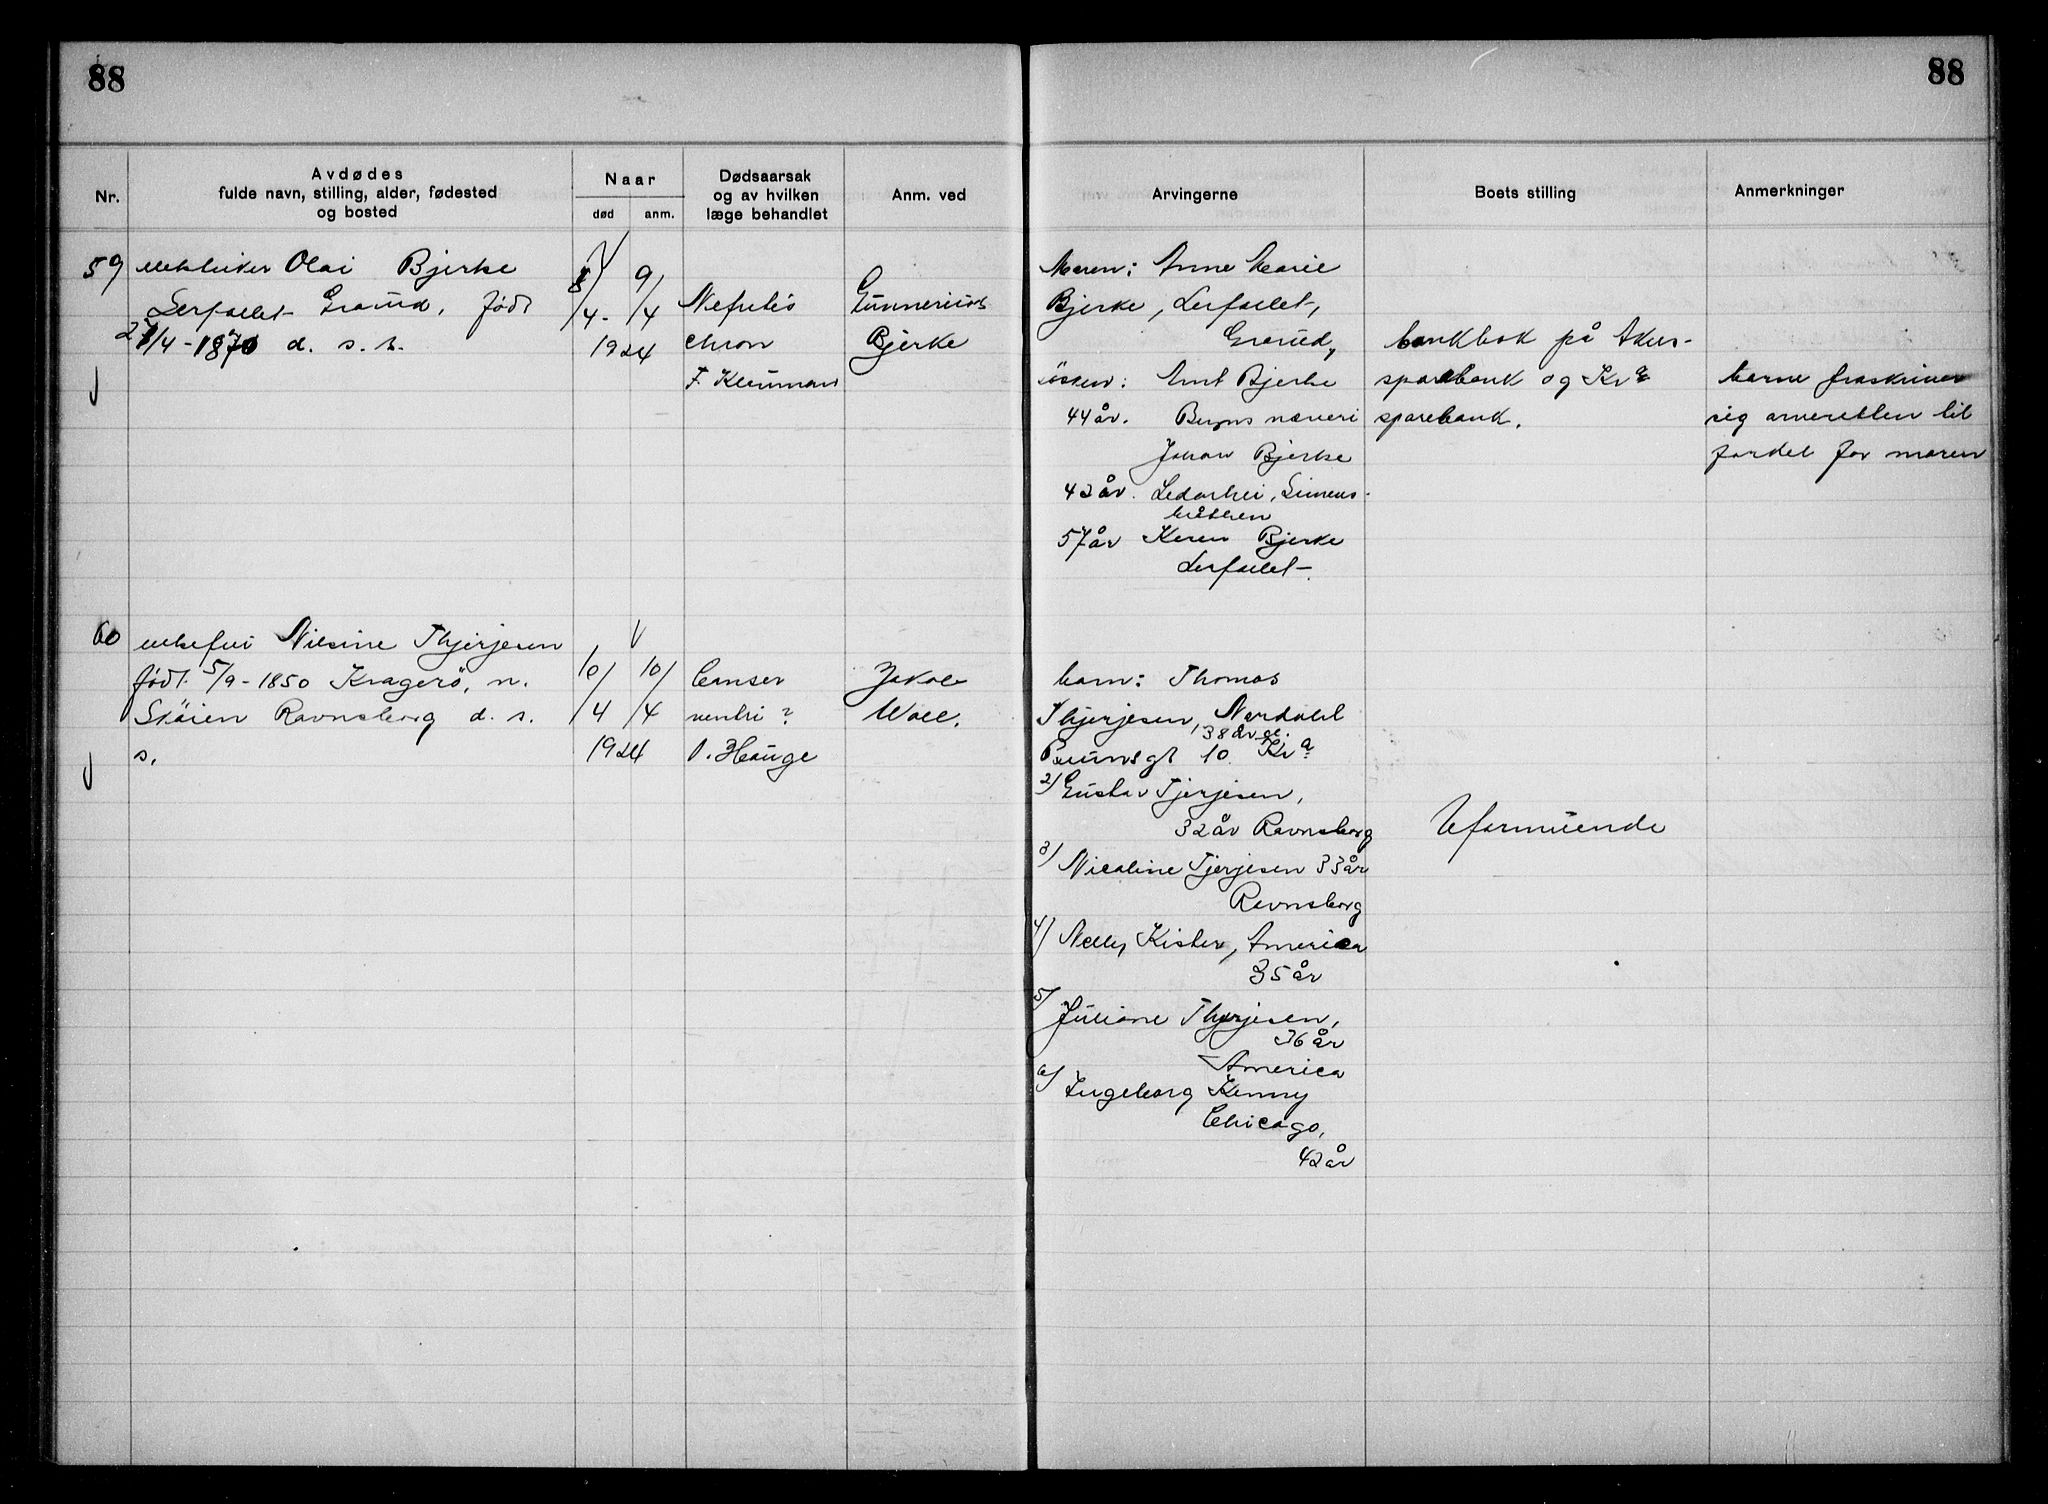 88
88
Nr.
Avdødes
fulde navn, stilling, alder, fødested
og bosted
Naar
død
anm.
Dødsaarsak
og av hvilken
læge behandlet
Anm. ved
Arvingerne
Boets stilling
Anmerkninger
59
Olai Bjerke
Lerfallet Grorud, født
27/4-1870 d. s. s.
8/4- 9/4
1924
Nefritis
chron
F.
Gunnerius
Bjerke
Moren: Anne Marie
Bjerke, Lerfallet,
Grorud,
søsken: Amt Bjerke
44 år. Bryns
Johan Bjerke
43 år.
57 år Karen Bjerke
Lerfallet
bankbok på Akers-
sparebank og Kra
sparebank.
barne fraskriver
sig arveretten til
fordel for moren
60
enkefru Nilsine Thjerjesen
født 5/9-1850 Kragerö, n.
Sköien Ravnsborg d. s.
s.
10/4 10/4
1924
Canser
ventri?
O. Hauge
Jakob
Woll.
barn: Thomas
Thjerjesen, Nordahl
38 år gl.
Brunsgt 10 Kra
2/ Gustav Tjerjesen,
32 år Ravnsborg
3/ Nicoline Tjerjesen 33 år
Ravnsborg
4/ Nelly Kister, America
35 år
5/ Juliane Thjerjesen,
36 år
America
6/ Ingeborg Kenny
Chicago,
42 år
Uformuende